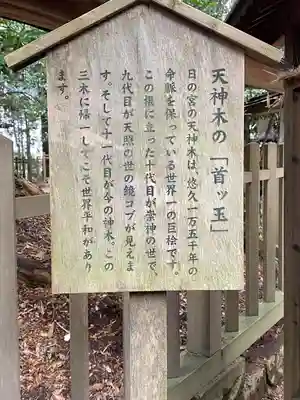 天神木の「首ッ玉」
日の宮の天神木は、悠久一万五千年の
命脈を保っている世界一の巨桧です。
この根に立った十代目が崇神の世で、
九代目が天照の世の鏡コブが見えま
す。そして十一代目が今の神木。この
三木に帰一してこそ世界平和があり
ます。